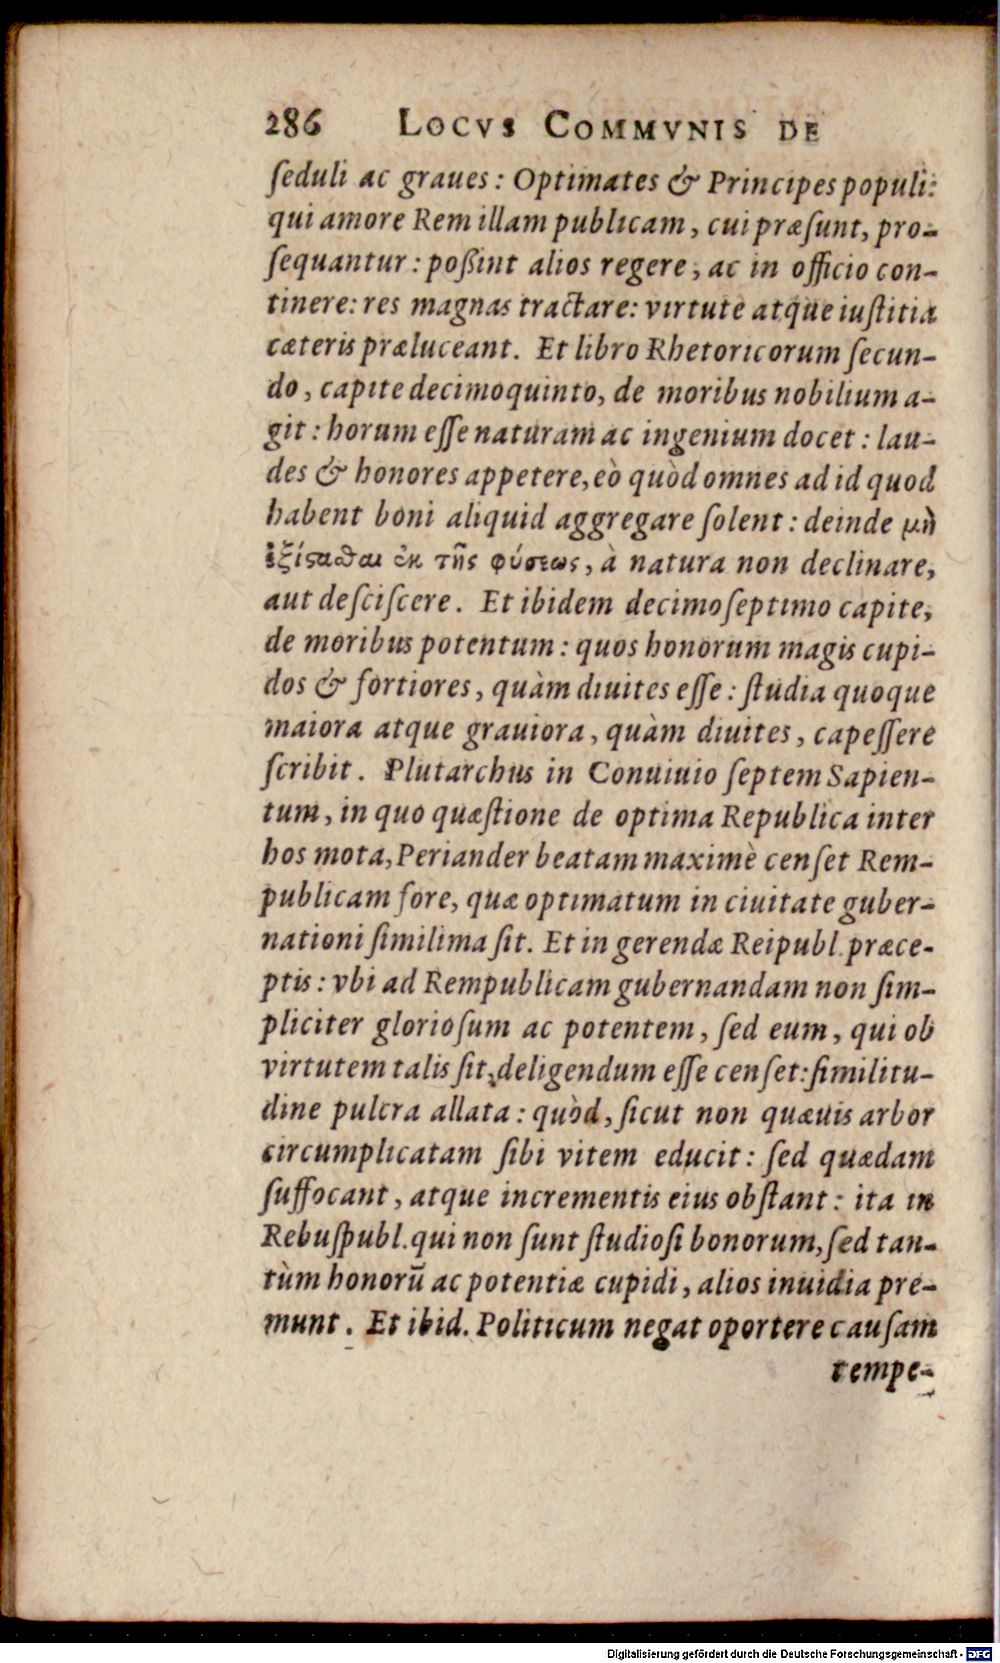 286 LOCVS COMMVNIS DE
ſeduli ac graues: Optimates & Principes populi:
qui amore Rem illam publicam, cui præſunt, pro-
ſequantur: poßint alios regere, ac in officio con-
tinere: res magnas tractare: virtute atque iuſtitia
cæteris præluceant. Et libro Rhetoricorum ſecun-
do, capite decimoquinto, de moribus nobilium a-
git: horum eſſe naturam ac ingenium docet: lau-
des & honores appetere, eò quòd omnes ad id quod
habent boni aliquid aggregare ſolent: deinde μὴ
ἐξίϛαϑαι ἐκ τῆς φύσεως, à natura non declinare,
aut deſciſcere. Et ibidem decimoſeptimo capite,
de moribus potentum: quos honorum magis cupi-
dos & fortiores, quàm diuites eſſe: ſtudia quoque
maiora atque grauiora, quàm diuites, capeſſere
ſcribit. Plutarchus in Conuiuio ſeptem Sapien-
tum, in quo quæſtione de optima Republica inter
hos mota, Periander beatam maximè cenſet Rem-
publicam fore, quæ optimatum in ciuitate guber-
nationi ſimilima ſit. Et in gerendæ Reipubl. præce-
ptis: vbi ad Rempublicam gubernandam non ſim-
pliciter glorioſum ac potentem, ſed eum, qui ob
virtutem talis ſit, deligendum eſſe cenſet: ſimilitu-
dine pulcra allata: quòd, ſicut non quæuis arbor
circumplicatam ſibi vitem educit: ſed quædam
ſuffocant, atque incrementis eius obſtant: ita in
Rebuſpubl. qui non ſunt ſtudioſi bonorum, ſed tan-
tùm honorū ac potentiæ cupidi, alios inuidia pre-
munt. Et ibid. Politicum negat oportere cauſam
tempe-
Digitalisierung gefördert durch die Deutsche Forschungsgemeinschaft - DFG